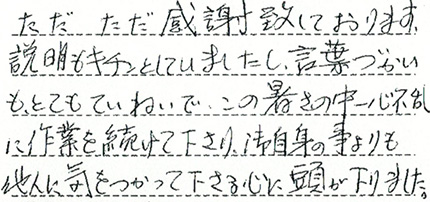 ただ ただ 感謝致しております。
説明もキチンとしていましたし、言葉づかい
も、とてもていねいで、この暑さの中一心不乱
に作業を続けて下さり、御自身の事よりも
他人に気をつかって下さる心に頭が下りました。